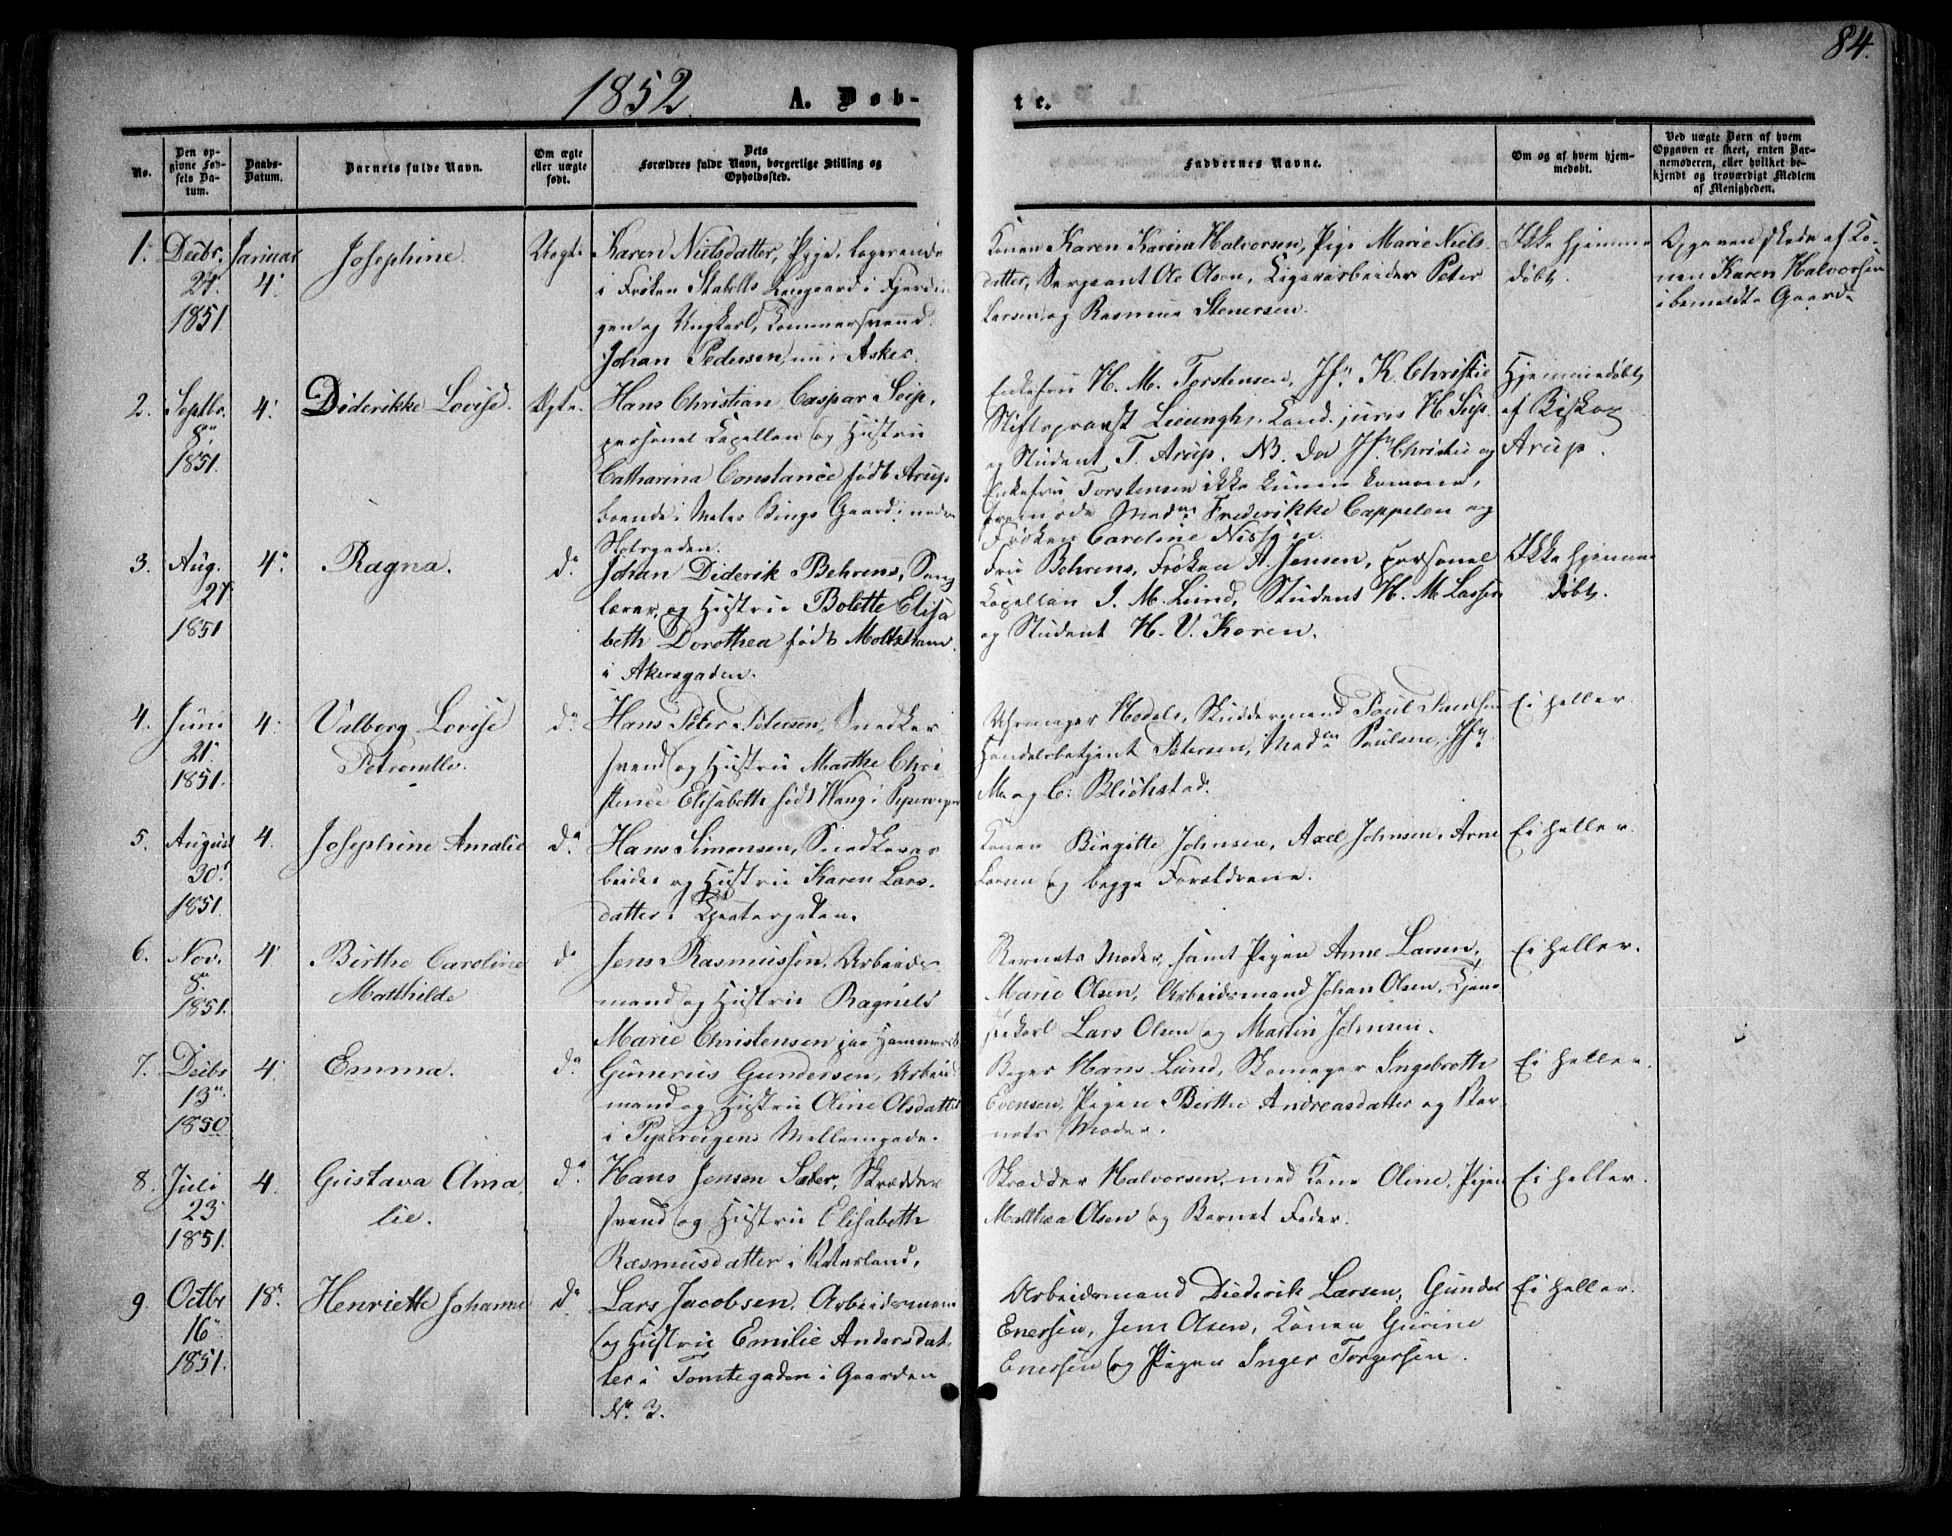 84.
1852.
A. Døb-
te.
No.
Den op-
givne Fød-
sels Da-
tum.
Daabs-
Datum.
Barnets fulde Navn.
Om ægte
eller uægte
født.
Dets
Forældres fulde Navn, borgerlige Stilling og
Opholdssted.
Faddernes Navne.
Om og af hvem hjem-
medøbt.
Ved uægte Børn af hvem
Opgaven er skeet, enten Bar-
nemoderen, eller hvilket be-
kjendt og troværdigt Medlem
af Menigheden.
1.
Decbr.
24.
1851
Januar
4.
Josephine.
Uægte
Karen Nielsdatter, Pige, logerende
i Frøken Stabells Løngaard i Fjerdin
gen og Ungkarl,
Johan Pedersen, nu i Asker.
Konen Karen Karina Halvorsen, Pige Marie Niels-
datter, Sergeant Ole Olsen, Cigararbeider Peter
Larsen og Rasmus Stenersen.
Ikke hjemme
døbt.
Opgaven skede af Ko-
nen Karen Halvorsen
i bemeldte Gaard.
2.
Septbr.
8.
1851.
4.
Diderikke Lovise.
Ægte.
Hans Christian Caspar Seip,
personel Capellan og Hustru
Catharina Constance født Arup
boende i Maler Bings Gaard i nedre
Slotsgaden.
Enkefru H. M. Torstensen, Jfr. K. Christie
Stiftsprovst Lieungh, Kand. juris H. Seip
og Student T. Arup. NB. Da Jfr. Christie og
Enkefru Torstensen ikke kunne komme,
fremsode Mad. Frederikke Cappelen og
Frøken Caroline Nissen.
Hjemmedøbt
af Biskop
Arup.
3.
Aug.
27
1851
4.
Ragna.
do.
Johan Diderik Behrens, Sang
lærer, og Hustru Bolette Elisa
beth Dorothea født
i Akersgaden.
Fru Behrens, Frøken A. Jensen, personel
Capellan J. M. Lund, Student H. M. Lassen
og Student H. V. Koren.
Ikke hjemme
døbt.
4.
Juni
21.
1851.
4.
Valborg Lovise
Petronelle.
do.
Hans Peter Petersen, Snedker
svend og Hustru Marthe Chri
stence Elisabeth født Wang i Pipervigen
Uhrmager Hodels, Skuddermand Poul
Handelsbetjent Petersen, Mad. Paulsen, Jfr.
M. og C. Blichstad.
Ei heller.
5.
August
30.
1851.
4.
Josephine Amalie
do.
Hans Simonsen, Snedkerar
beider og Hustru Karen Lars-
datter i Theatergaden.
Konen Birgitte Johnsen, Axel Johnsen, Arne
Larsen og begge Forældrene.
Ei heller.
6.
Nov.
8.
1851.
4.
Birthe Caroline
Matthilde
do
Jens Rasmussen, Arbeids-
mand og Hustru Ragnild
Marie Christensen paa
Barnets Moder, samt Pigen Anne Larsen,
Marie Olsen, Arbeidsmand Johan Olsen, Tjene
stekarl Lars Olsen og Martin Johnsen.
Ei heller.
7.
Decbr
13.
1850.
4.
Emma.
do.
Gunerius Gundersen, Arbeids
mand og Hustru Oline Olsdatter
i Pipervigens Mellemgade.
Bager Hans Lund, Skomager Ingebreth
Evensen, Pigen Birthe Andreasdatter og Bar-
nets Moder.
Ei heller.
8.
Juli
23
1851.
4.
Gustava Ama
lie.
do.
Hans Jensen Sæter, Skrædder
svend og Hustru Elisabeth
Rasmusdatter i Vaterland.
Skrædder Halvorsen, med Kone Oline, Pigen
Matthea Olsen og Barnet Fader.
Ei heller.
9.
Octbr
16.
1851.
18.
Henriette Johanne
do.
Lars Jacobsen, Arbeidsmand
og Hustru Emilie Andersdat
ter i Tomtegaden i Gaarden
No. 3.
Arbeidsmand Diederik Larsen, Gunder
Enersen, Jens Olsen, Konen Gurine
Enersen og Pigen Inger Torgersen.
Ei heller.